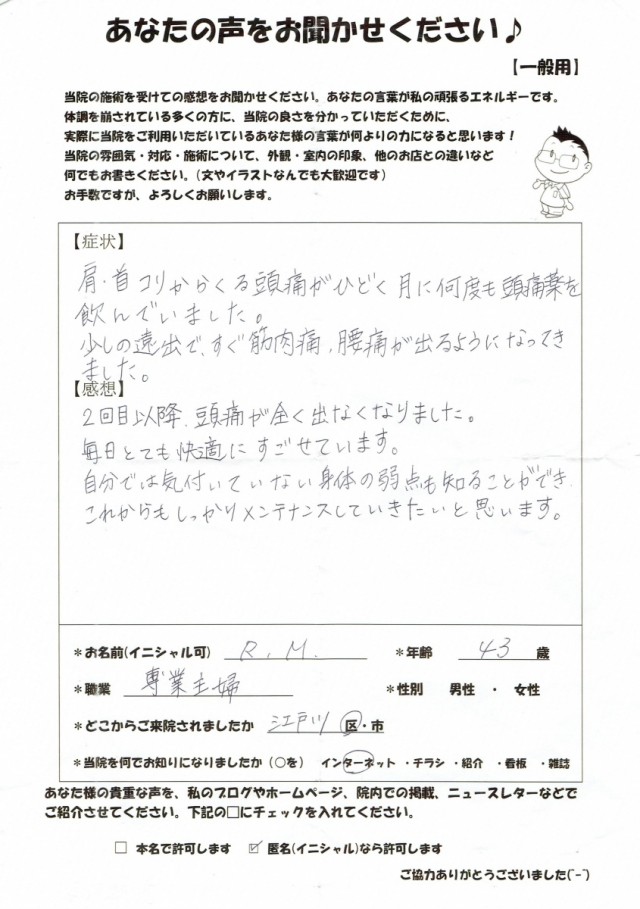 あなたの声をお聞かせください♪
【一般用】
当院の施術を受けての感想をお聞かせください。あなたの言葉が私の頑張るエネルギーです。
体調を崩されている多くの方に、当院の良さを分かっていただくために、
実際に当院をご利用いただいているあなた様の言葉が何よりの力になると思います！
当院の雰囲気・対応・施術について、外観・室内の印象、他のお店との違いなど
何でもお書きください。(文やイラストなんでも大歓迎です)
お手数ですが、よろしくお願いします。
【症状】
肩・首コリからくる頭痛がひどく月に何度も頭痛薬を
飲んでいました。
少しの遠出で、すぐ筋肉痛、腰痛が出るようになってき
ました。
【感想】
2回目以降、頭痛が全く出なくなりました。
毎日とても快適にすごせています。
自分では気付いていない身体の弱点も知ることができ、
これからもしっかりメンテナンスしていきたいと思います。
*お名前(イニシャル可) R.M. *年齢 43 歳
*職業 専業主婦 *性別 男性 ・ 女性
*どこからご来院されましたか 江戸川 区・市
*当院を何でお知りになりましたか(○を) インターネット ・チラシ ・紹介 ・看板 ・雑誌
あなた様の貴重な声を、私のブログやホームページ、院内での掲載、ニュースレターなどで
ご紹介させてください。下記の□にチェックを入れてください。
□ 本名で許可します ☑ 匿名(イニシャル)なら許可します
ご協力ありがとうございました(^-^)